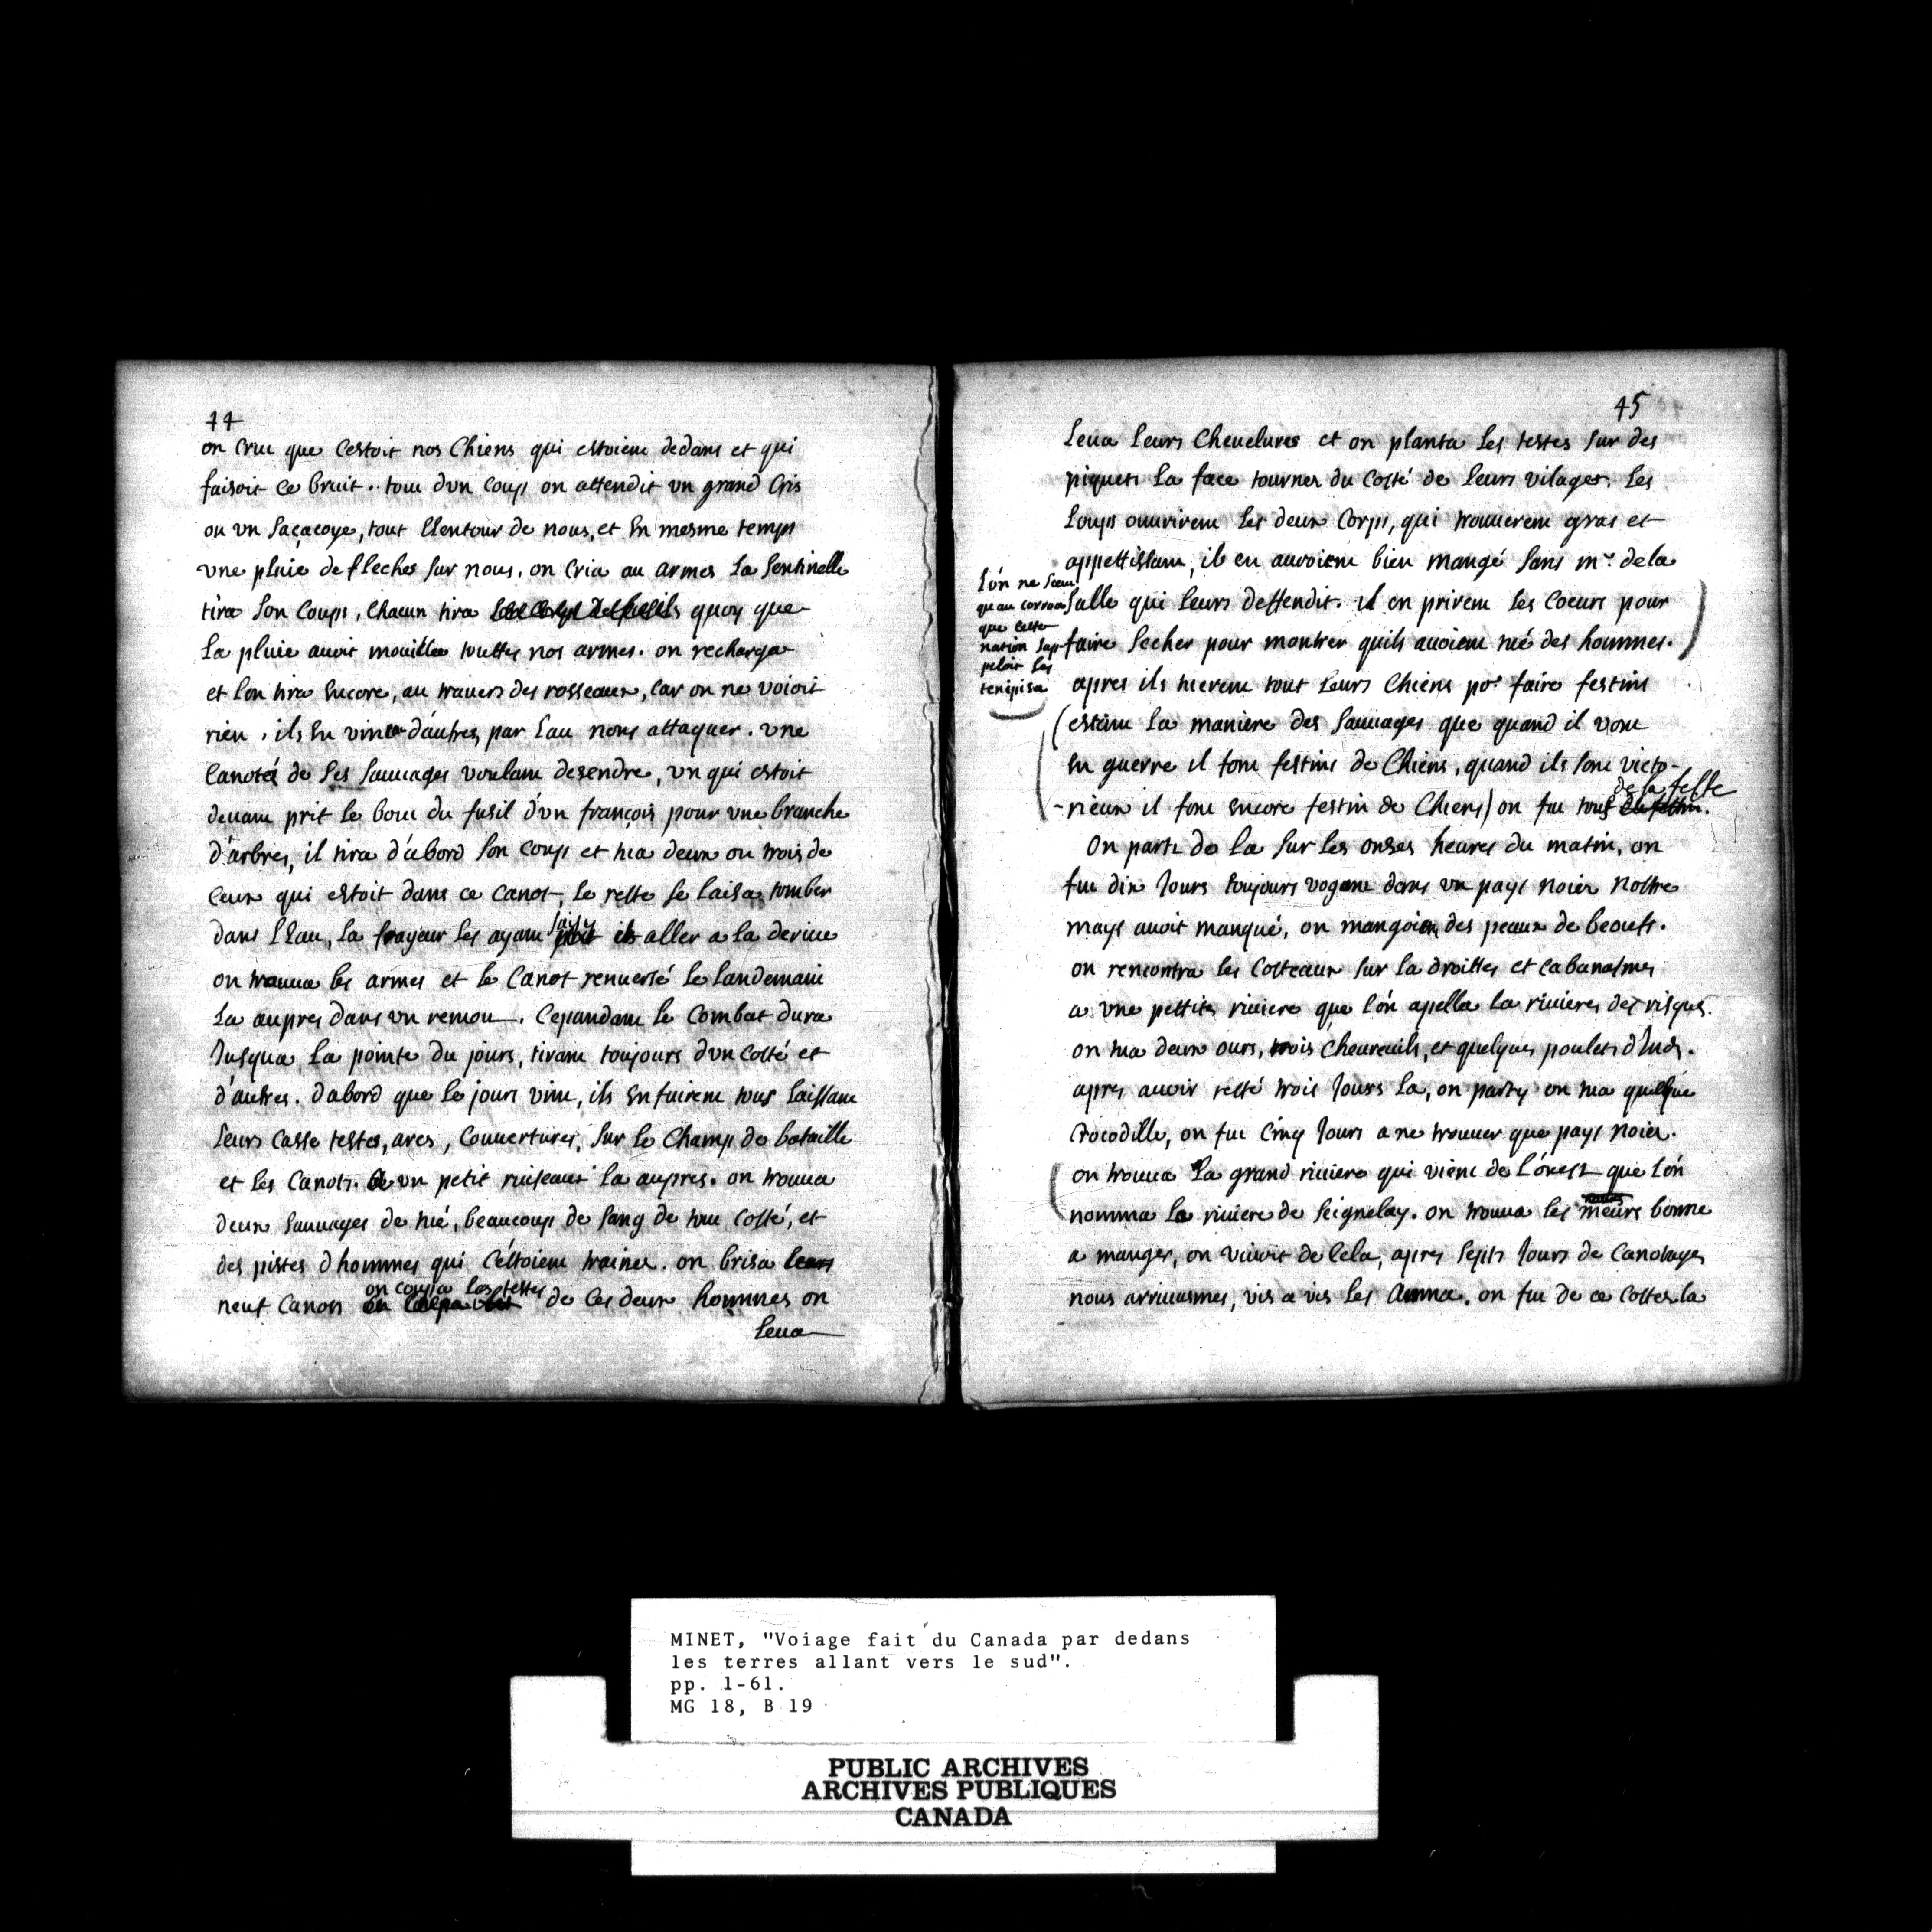 44
on crut que cestoit nos Chiens qui estoient dedans et qui
faisoit ce bruit.. tout dvn coup on attendit vn grand Cris
ou vn saçacoye, tout Llentour de nous, et En mesme temps
vne pluie de fleches sur nous. on Cria au armes La Sentinelle
tira son Coups, Chacun tira quoy que
La pluie auoit mouillée touttes nos armes. on rechargea
et Lon tira Encore, au trauers des rosseaux, Car on ne voioit
rien. ils En vint d'autres par Leau nous attaquer. vne
Canotés de Ses Sauuages voulant desendre, vn qui estoit
deuant prit le bout du fusil d'vn françois pour vne branche
d'arbres, il tira d'abord son coup et tua deux ou trois de
ceux qui estoit dans ce Canot, le reste se laisa tomber
dans LEau, La frayeur les ayant saisy aller a la deriue
on trouua les armes et le Canot renuersé le landemain
La aupres dans vn remou. Cepandant le Combat dura
Jusqua La pointe du jours, tirant toujours dvn Costé et
d'autres. dabord que le jours vint, ils Enfuirent tous laissant
leurs Casse testes, arcs, Couuertures, sur le Champ de bataille
et les Canots. a vn petit ruiseaux la aupres. on trouua
deux Sauuages de tué, beaucoup de sang de tout Costé, et
des pistes dhommes qui Céstoient trainez. on brisa leurs
on coupa les testes
neuf Canots de Ces deux hommes on
Leua
45
Leua Leurs Cheuelures et on planta Les testes sur des
piquets La face tournez du Costé de leurs vilages. Les
Loups ouurirent les deux Corps, qui trouuerent gras et
appettissant, il en auroient bien mangé sans mr. de la
Salle qui leurs deffendit. il en prirent les Coeurs pour
faire secher pour montrer quils auoient tué des hommes.)
L'ón ne Sceut
qu au
que Cette
nation sap-
peloit les
tenipisa
apres ils tuerent tout Leurs Chiens por faire festins
(estant La maniere des sauuages que quand il vont
En guerre il font festins de Chiens, quand ils sont victo-
-rieux il font Encore festin de Chiens) on fut tous
de la feste
On parti de La sur les onses heures du matin, on
fut dix Jours toujours vogant dans vn pays noier nostre
mays auoit manqué, on mangoient des peaux de beoufs.
on rencontra les Costeaux sur la droittes et cabanasmes
a vne pettits riuiere que l'ón apella la riuieres des risques.
on tua deux ours, trois Cheureuils, et quelques poulets d'Inds.
apres auoir resté trois Jours La, on party on tua quelque
Crocodille, on fut Cinq Jours a ne trouuer que pays noier.
(on trouua La grand riuiere qui vient de L'óuest que L'ón
nomma La riuiere de Seignelay. on trouua les meurs bonne
a manger, on viuoit de Cela, apres Septs Jours de Canotages
nous arriuasmes, vis a vis les . on fut de ce Costez la
MINET, "Voiage fait du Canada par dedans
les terres allant vers le sud".
pp. 1-61.
MG 18, B 19
PUBLIC ARCHIVES
ARCHIVES PUBLIQUES
CANADA